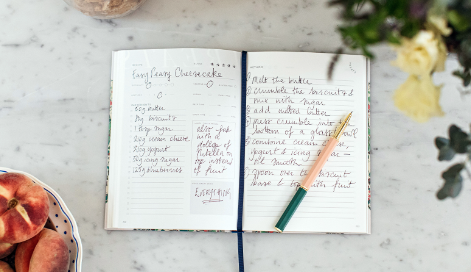 Easy Peasy Cheesecake
60g butter
110g biscuits
1 tbsp sugar
200g cream cheese
120g yogurt
50g icing sugar
125g blueberries
also fab
with a
dollop of
Nutella on
top instead
of fruit
Everyone
① Melt the butter
② crumble the biscuits &
mix with sugar
③ add melted butter
④ press crumble into
bottom of a glass
⑤ combine cream cheese,
yogurt & icing sugar
till smooth
⑥ spoon over the biscuit
base & top with fruit